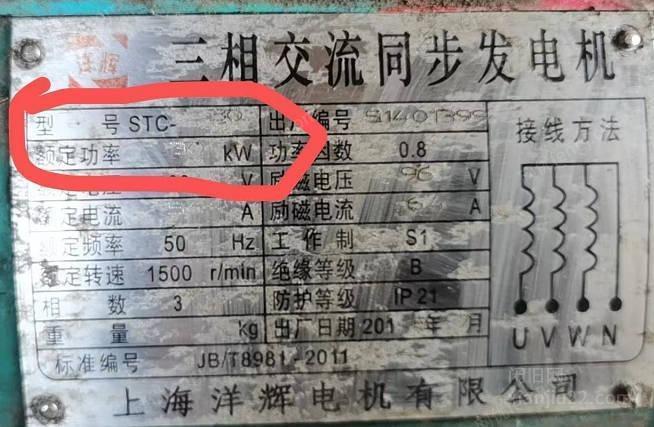 洋辉
三相交流同步发电机
型 号 STC-30 出厂编号 S1401399
额定功率 kW 功率因数 0.8
V 励磁电压 96 V
定电流 A 励磁电流 A
额定频率 50 Hz 工作制 S1
定转速 1500 r/min 绝缘等级 B
相 数 3 防护等级 IP21
重 量 kg 出厂日期 201 年 月
标准编号 JB/T8981-2011
接线方法
U V W N
上海洋辉电机有限公司